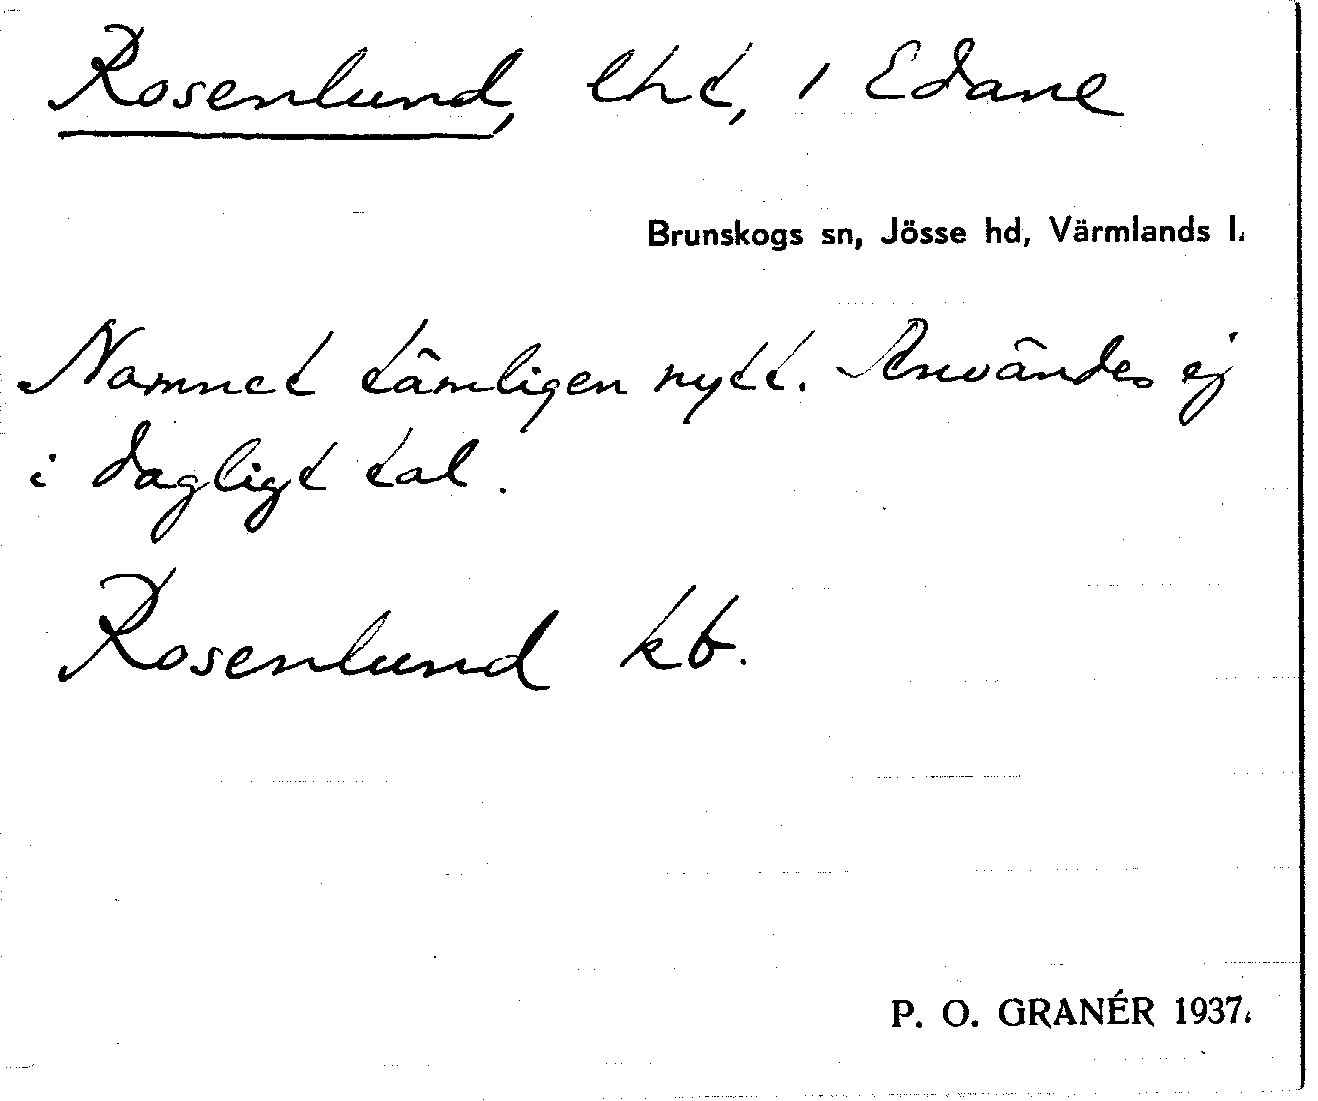 Rosenlund, lht, 1 Edane
Brunskogs sn, Jösse hd, Värmlands l.
Namnet tämligen nytt. Användes ej
i dagligt tal.
Rosenlund kb.
P. O. GRANÉR 1937.